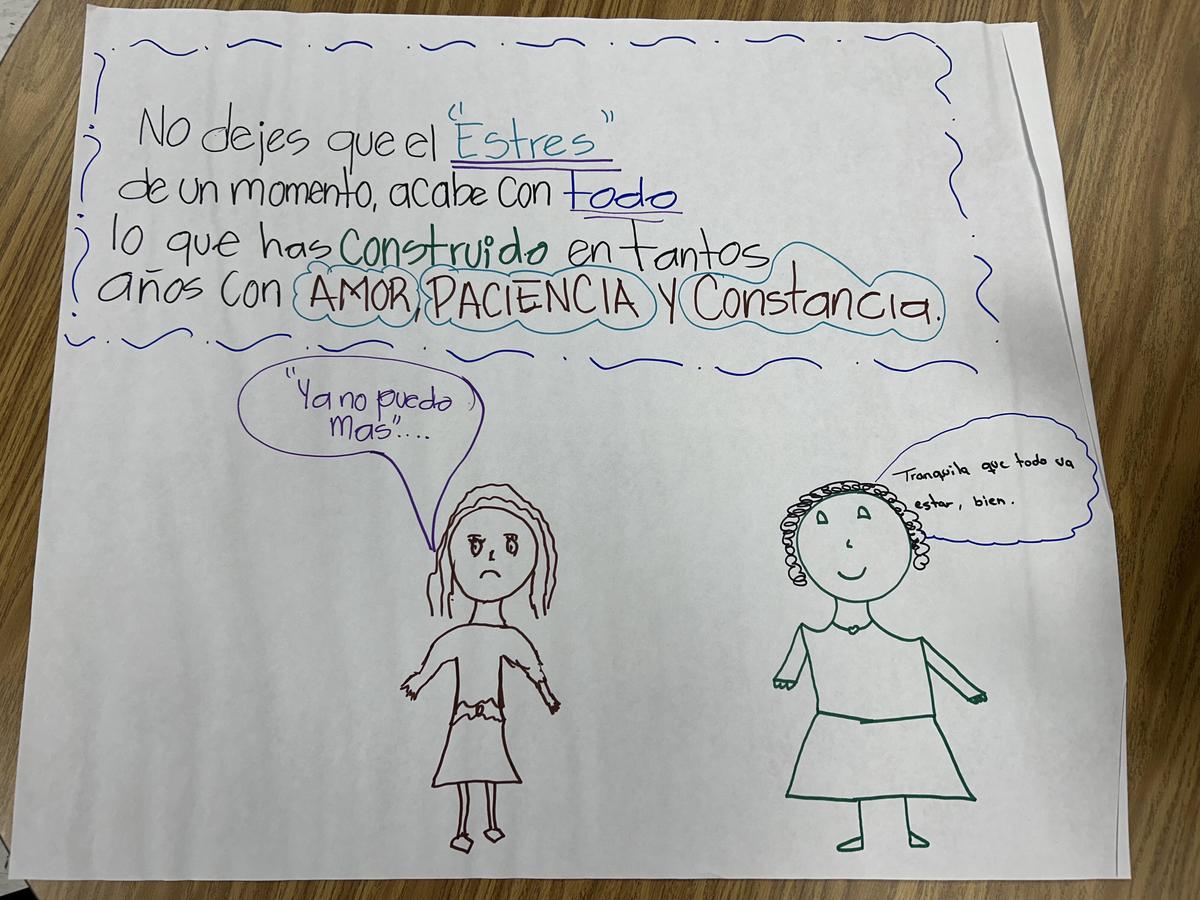 No dejes que el "Estres"
de un momento, acabe con todo
lo que has construido en tantos
años con AMOR, PACIENCIA Y Constancia.
"Ya no puedo
mas"....
Tranquila que todo va
estar, bien.